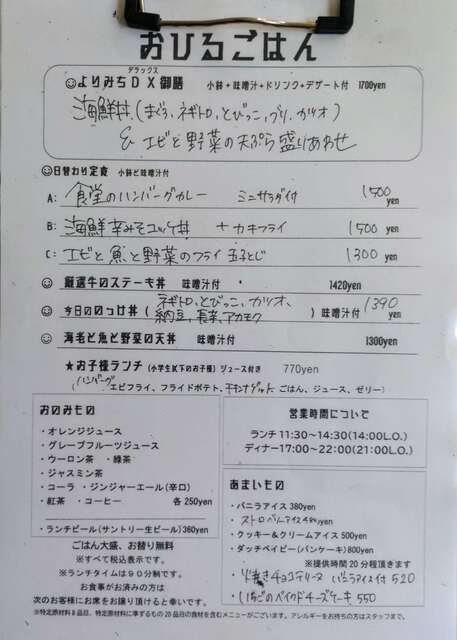 おひるごはん
デラックス
よりみちDX御膳 小鉢+味噌汁+ドリンク+デザート付 1700yen
海鮮丼(まぐろ、ネギトロ、とびっこ、ブリ、カツオ)
& エビと野菜の天ぷら盛りあわせ
日替わり定食 小鉢と味噌汁付
A: 食堂のハンバーグカレー ミニサラダ付 1500 yen
B: 海鮮辛みそユッケ丼 +カキフライ 1500 yen
C: エビと魚と野菜のフライ玉子とじ 1300 yen
厳選牛のステーキ丼 味噌汁付 1420yen
今日ののっけ丼 (ネギトロ、とびっこ、カツオ、 )味噌汁付 1390 yen
納豆、長芋、アカモク
海老と魚と野菜の天丼 味噌汁付 1300yen
★お子様ランチ (小学生以下のお子様) ジュース付き 770yen
(ハンバーグ エビフライ、フライドポテト、チキンナゲット ごはん、ジュース、ゼリー)
おのみもの
・オレンジジュース
・グレープフルーツジュース
・ウーロン茶 ・緑茶
・ジャスミン茶
・コーラ ・ジンジャーエール(辛口)
・紅茶 ・コーヒー 各250yen
・ランチビール(サントリー生ビール)360yen
ごはん大盛、お替り無料
※すべて税込表示です。
※ランチタイムは90分制です。
お食事がお済みの方は
次のお客様にお席をお譲り頂けると幸いです。
営業時間について
ランチ 11:30~14:30(14:00L.O.)
ディナー17:00~22:00(21:00L.O.)
あまいもの
・バニラアイス 380yen
・ストロベリーアイス 480yen
・クッキー&クリームアイス 500yen
・ダッチベイビー(パンケーキ)800yen
※提供時間20分程頂きます
・焼きチョコテリーヌ バニラアイス付 520
・いちごのベイクドチーズケーキ 550
※特定原材料8品目、特定原材料に準ずるもの20品目の食材を含むメニューがございます。アレルギーをお持ちの方はスタッフまで。